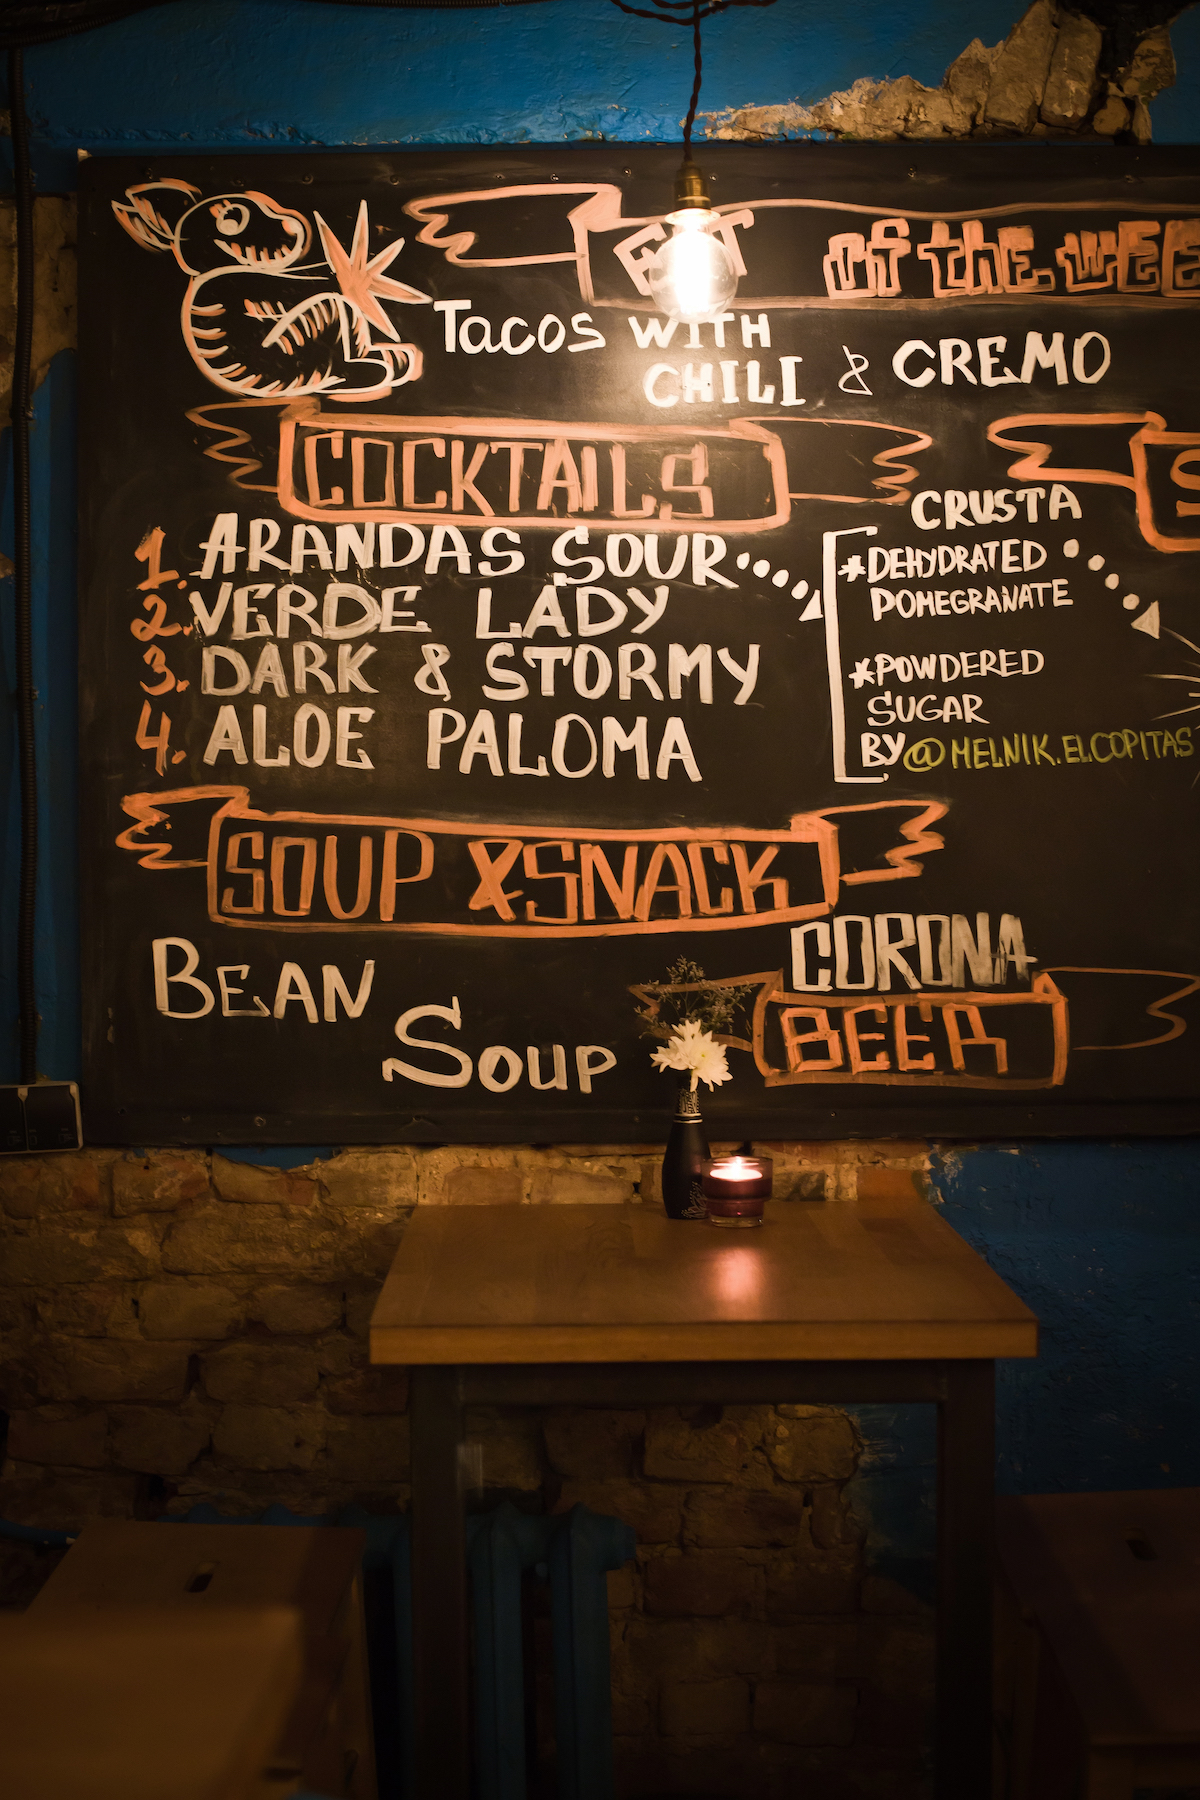 of the wee
Tacos WITH
CHILI & CREMO
COCKTAILS
1. ARANDAS SOUR
2. VERDE LADY
3. DARK & STORMY
4. ALOE PALOMA
CRUSTA
*DEHYDRATED
POMEGRANATE
*POWDERED
SUGAR
BY @MELNIK.ELCOPITAS
S
SOUP & SNACK
BEAN
SOUP
CORONA
BEER